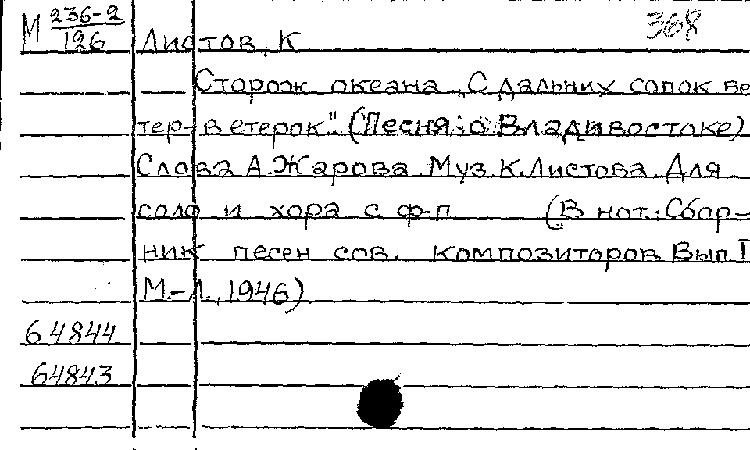 М 236-2/126
368
Листов, К
Сторож океана „С дальних сопок ве
тер-ветерок". (Песня о Владивостоке)
Слова А.Жарова. Муз. К.Листова. Для
соло и хора с ф-п (В нот.: Сбор-
ник песен сов. композиторов. Вып I
М.-Л., 1946)
64844
64843